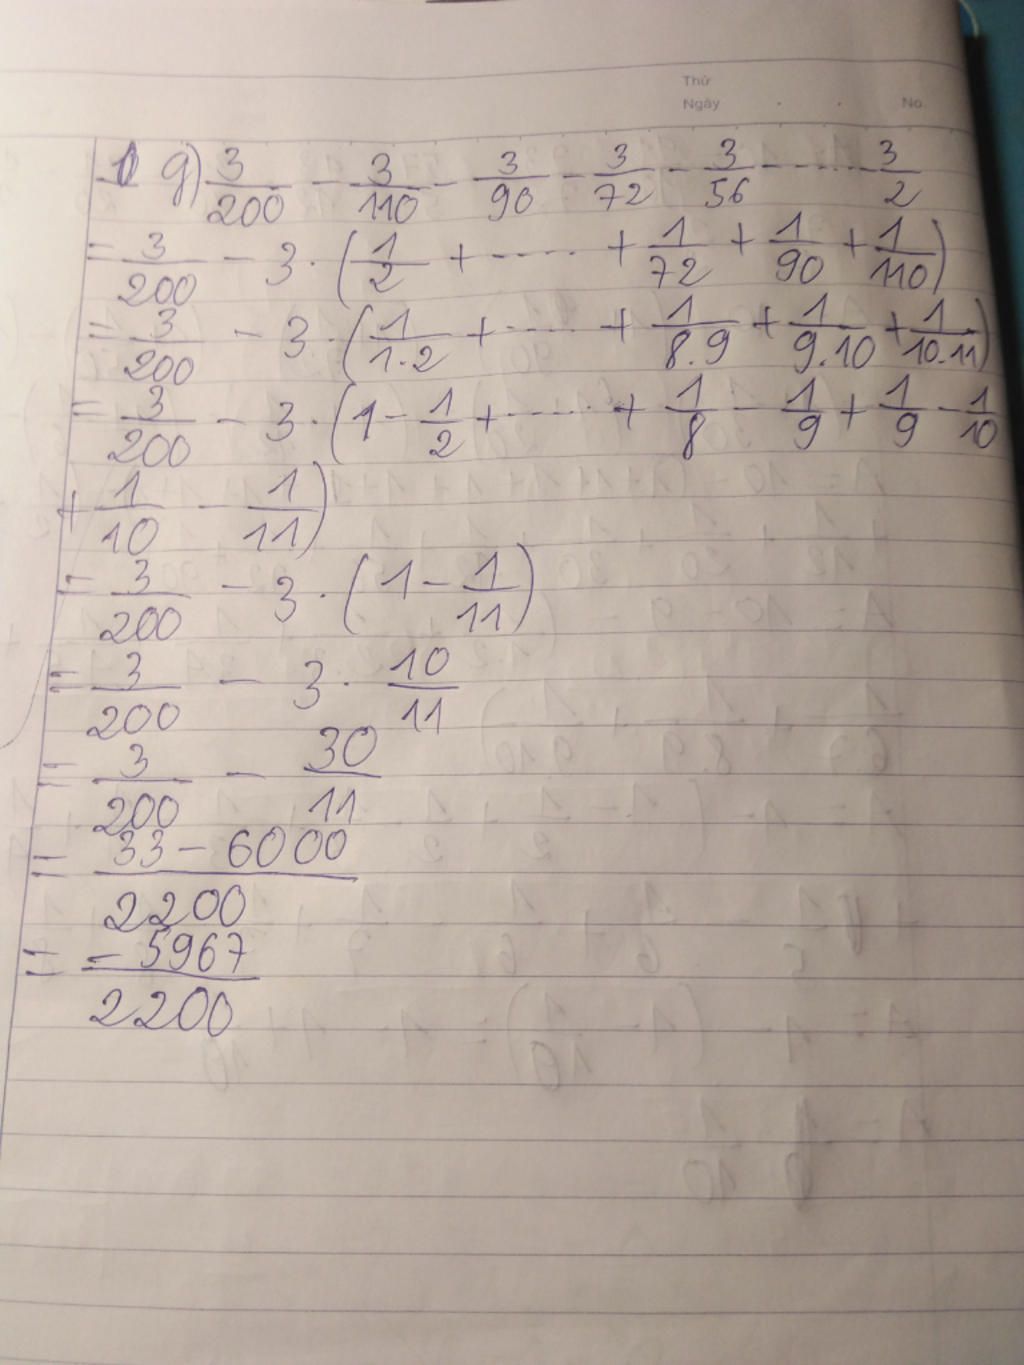 Thứ
Ngày . . No.
1 g) 3/200 - 3/110 - 3/90 - 3/72 - 3/56 - ..... 3/2
= 3/200 - 3 . (1/2 + ..... + 1/72 + 1/90 + 1/110)
= 3/200 - 3 . (1/1.2 + ..... + 1/8.9 + 1/9.10 + 1/10.11)
= 3/200 - 3 . (1 - 1/2 + ..... + 1/8 - 1/9 + 1/9 - 1/10
+ 1/10 - 1/11)
= 3/200 - 3 . (1 - 1/11)
= 3/200 - 3 . 10/11
= 3/200 - 30/11
= 33 - 6000/2200
= -5967/2200